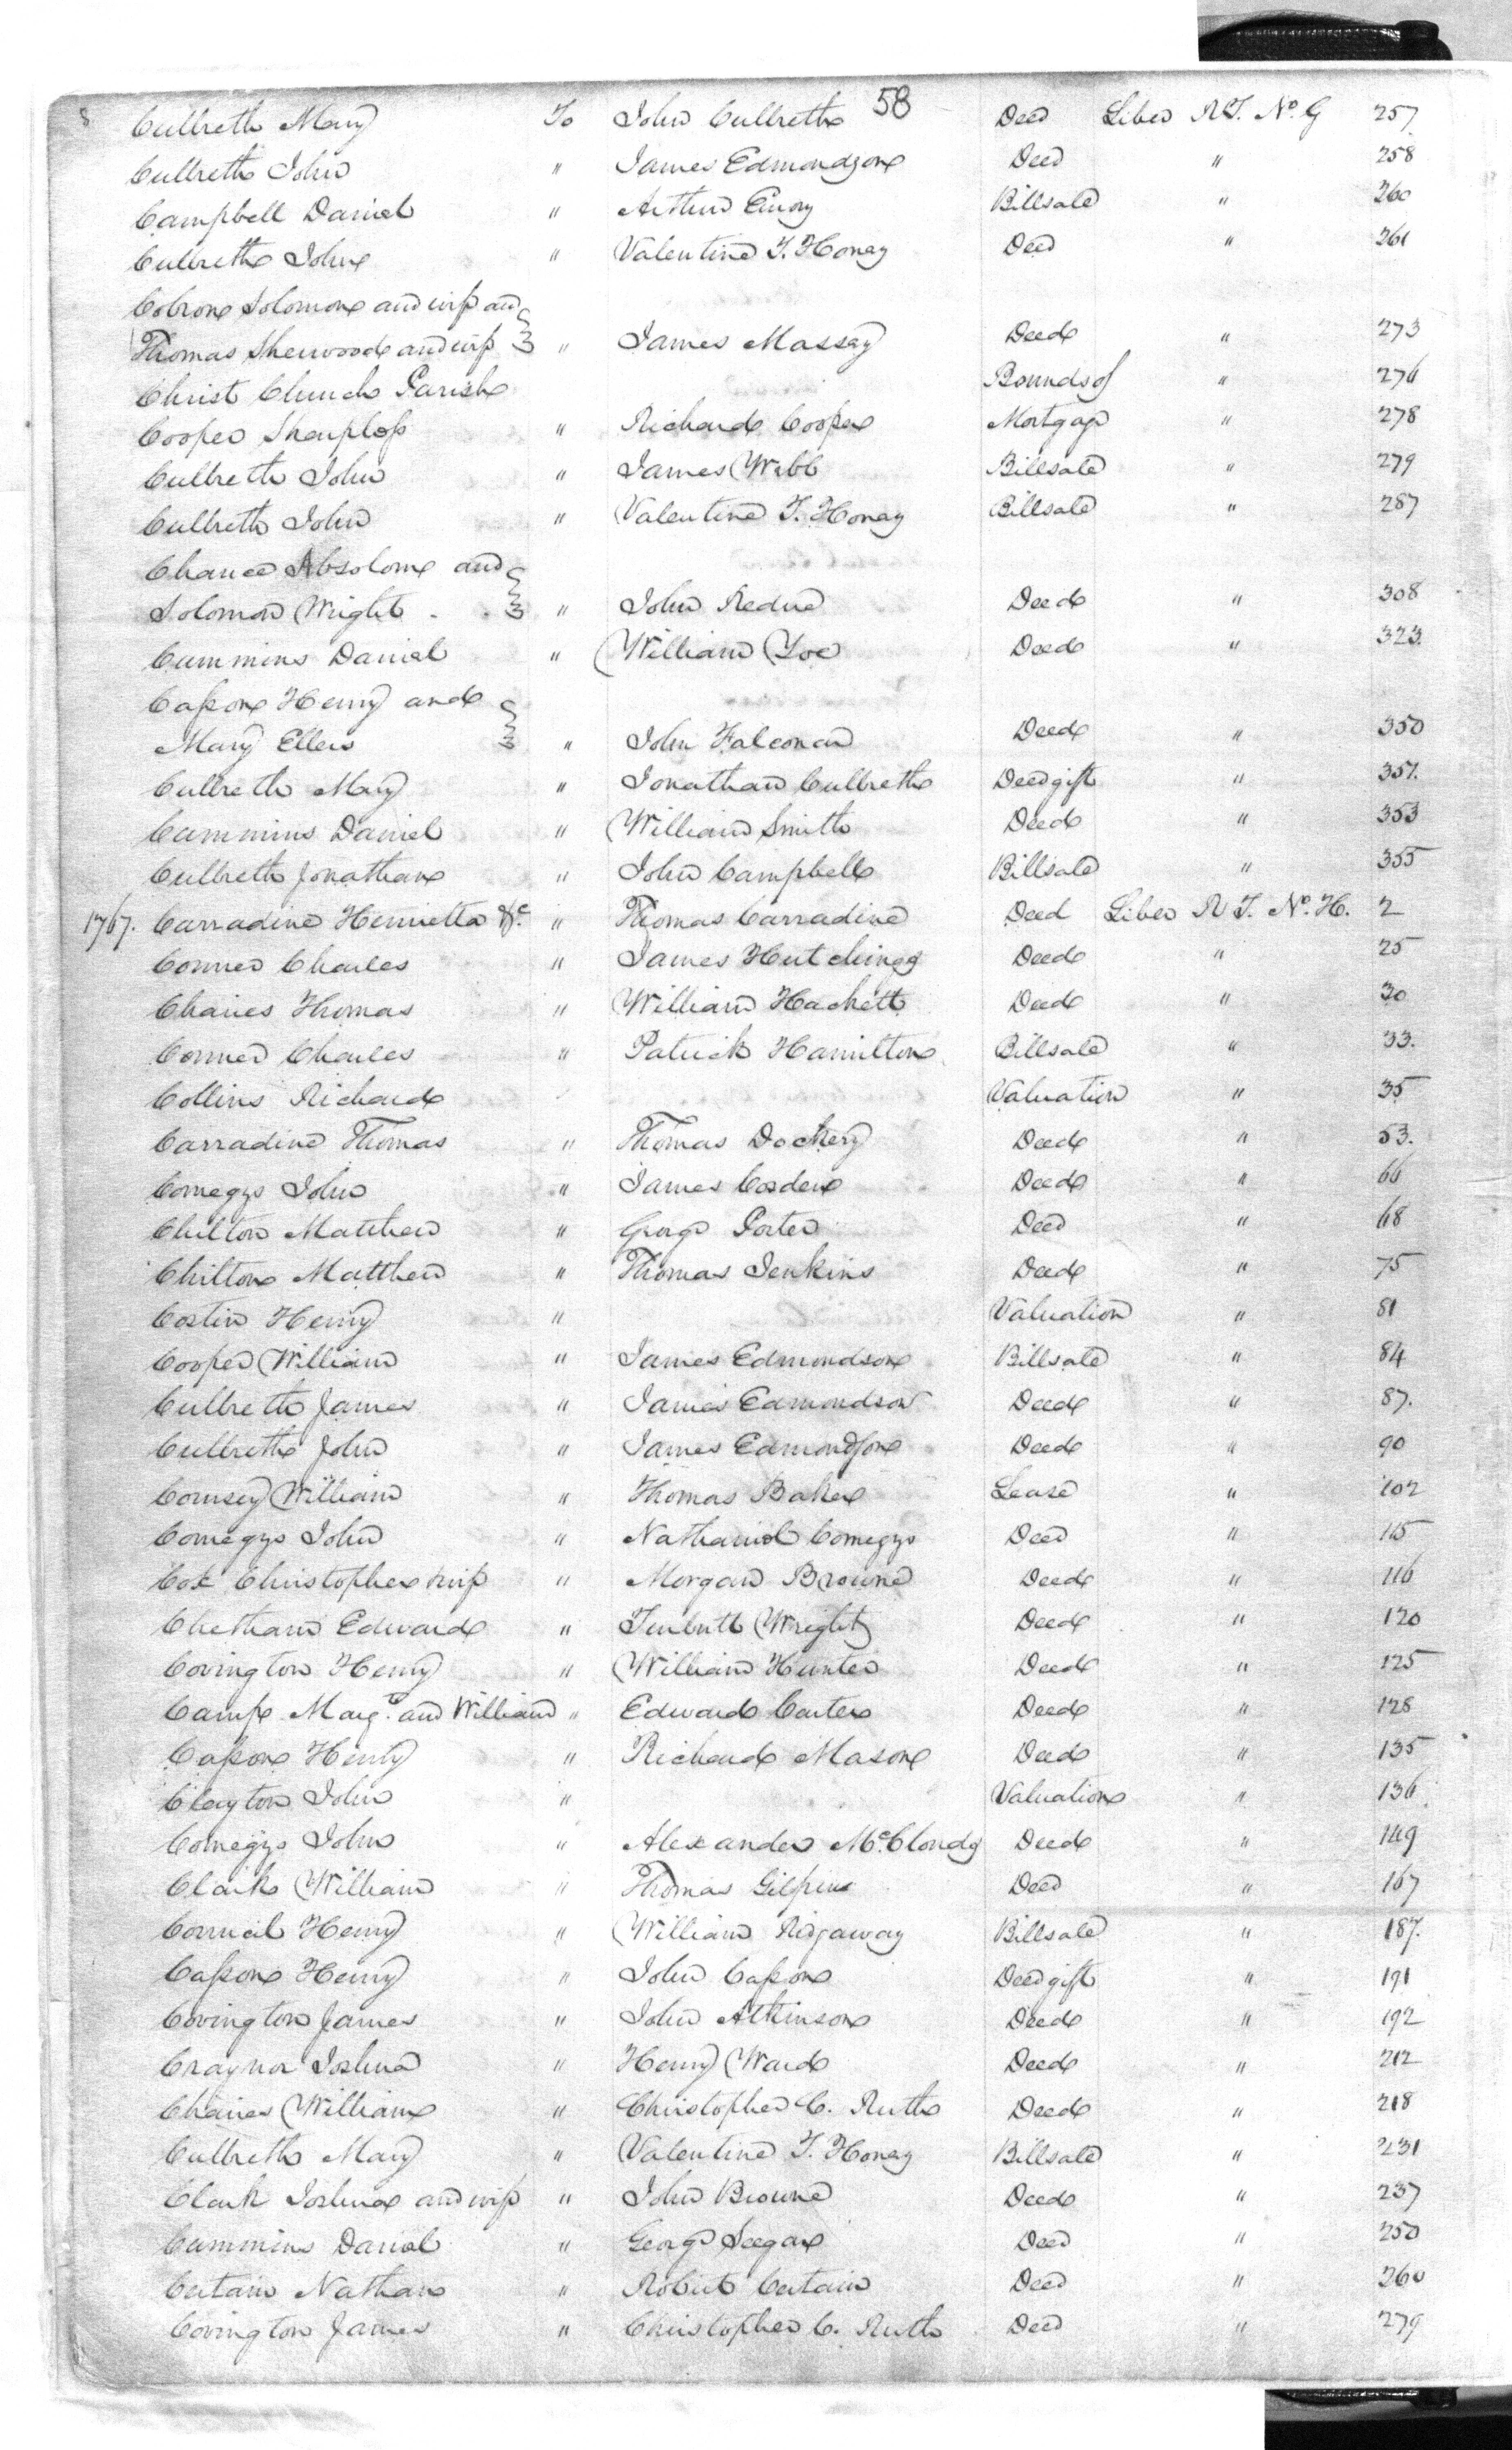 58
8 Culbreth Mary To John Culbreth Deed Liber R.T. No. G 257
Culbreth John " James Edmondson Deed " 258
Campbell Daniel " Arthur Emory Billsale " 260
Culbreth John " Valentine T. Honey Deed " 261
Cobron Solomon and wife and
Thomas Sherwood and wife " James Massey Deed " 273
Christ Church Parish Bounds of " 276
Cooper Sharpless " Richard Cooper Mortgage " 278
Culbreth John " James Webb Billsale " 279
Culbreth John " Valentine T. Honey Billsale " 287
Chance Absolom and
Solomon Wright " John Redue Deed " 308
Cummins Daniel " William Yoe Deed " 323
Casson Henry and
Mary Ellers " John Falconar Deed " 350
Culbreth Mary " Jonathan Culbreth Deed gift " 351.
Cummins Daniel " William Smith Deed " 353
Culbreth Jonathan " John Campbell Billsale " 355
1767. Carradine Henrietta &c " Thomas Carradine Deed Liber R T. No. H. 2
Conner Charles " James Hutchings Deed " 25
Chaires Thomas " William Hackett Deed " 30
Conner Charles " Patrick Hamilton Billsale " 33.
Collins Richard Valuation " 35
Carradine Thomas " Thomas Dockery Deed " 53.
Comegys John " James Cosden Deed " 66
Chilton Matthew " George Porter Deed " 68
Chilton Matthew " Thomas Jenkins Deed " 75
Costin Henry " Valuation " 81
Cooper William " James Edmondson Billsale " 84
Culbreth James " James Edmondson Deed " 87.
Culbreth John " James Edmondson Deed " 90
Comsey William " Thomas Baker Lease " 102
Comegys John " Nathaniel Comegys Deed " 115
Cox Christopher & wife " Morgan Browne Deed " 116
Chetham Edward " Turbutt Wright Deed " 120
Covington Henry " William Hunter Deed " 125
Camp Margt. and William " Edward Carter Deed " 128
Casson Henry " Richard Mason Deed " 135
Clayton John " Valuation " 136
Comegys John " Alexander McClondy Deed " 149
Clark William " Thomas Gilpin Deed " 167
Council Henry " William Ridgaway Billsale " 187.
Casson Henry " John Casson Deed gift " 191
Covington James " John Atkinson Deed " 192
Craynor Joshua " Henry Ward Deed " 212
Chaires William " Christopher C. Ruth Deed " 218
Culbreth Mary " Valentine T. Honey Billsale " 231
Clark Joshua and wife " John Browne Deed " 237
Cummins Daniel " George Seegar Deed " 250
Certain Nathan " Robert Certain Deed " 260
Covington James " Christopher C. Ruth Deed " 279